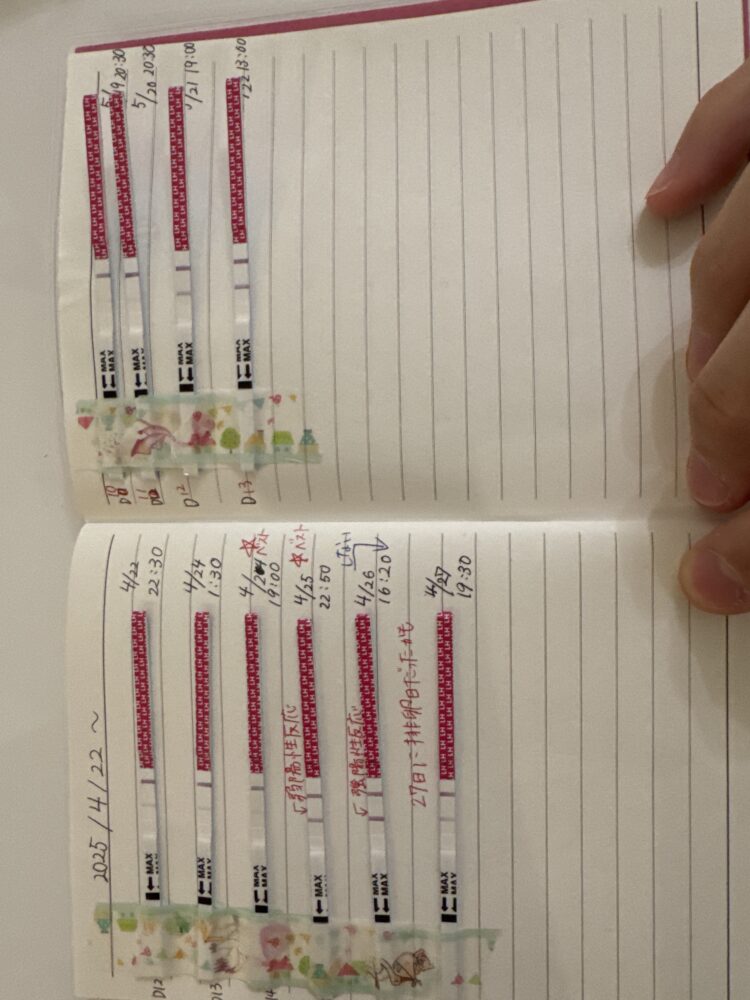 2025/4/22 〜
D12
MAX
MAX
4/22
22:30
D13
MAX
MAX
4/24
1:30
14
MAX
MAX
4/24
19:00
ベスト
MAX
↓弱陽性反応
4/25
22:50
ベスト
MAX
MAX
↓強陽性反応
4/26
16:20
27日に排卵日だったかも
MAX
MAX
4/27
19:30
D10
MAX
MAX
5/19 20:30
D11
MAX
MAX
5/20 20:30
D12
MAX
MAX
/21 19:00
D13
MAX
MAX
/22 13:00